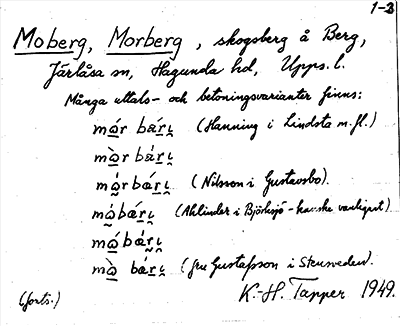 1-3
Moberg, Morberg, skogsberg å Berg,
Järlåsa sn, Hagunda hd, Upps. l.
Många uttals- och betoningsvarianter finns:
mɷ́r bárɩ (Hanning i Lindsta m.fl.)
mɷ̀r bárɩ
mɷ́r bárɩ (Nilsson i Gustavsbo).
mɷ́bárɩ (Ahlinder i Björksjö - kanske vanligast)
mɷ́bárɩ
mɷ̀ bárɩ (fru Gustafsson i Stensveden).
(forts.) K.-H. Tapper 1949.